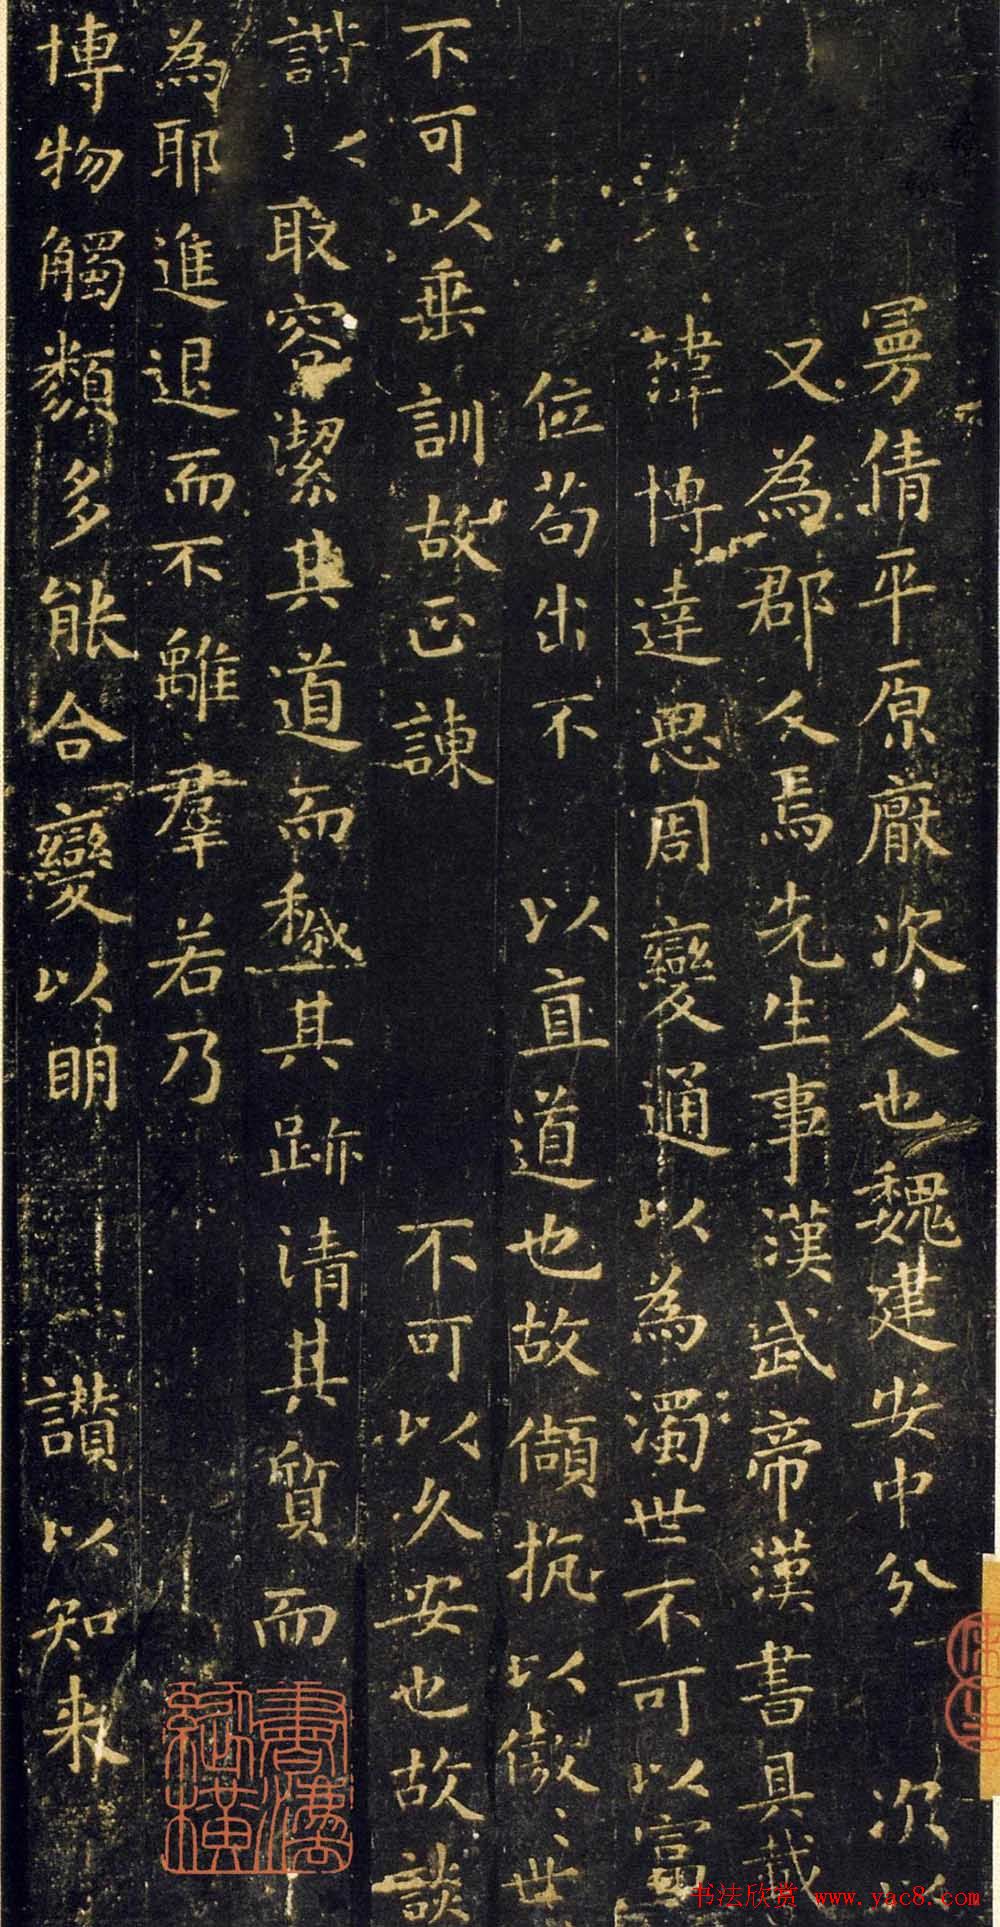 曼倩平原厭次人也魏建安中分 次以
又為郡人焉先生事漢武帝漢書具載
瑋博達思周變通以為濁世不可以富
位苟出不 以直道也故頡抗以傲世
不可以垂訓故正諫 不可以久安也故談
諧以取容潔其道而穢其跡清其質而
為耶進退而不離羣若乃
博物觸類多能合變以明 讚以知来
书法欣赏 www.yac8.com